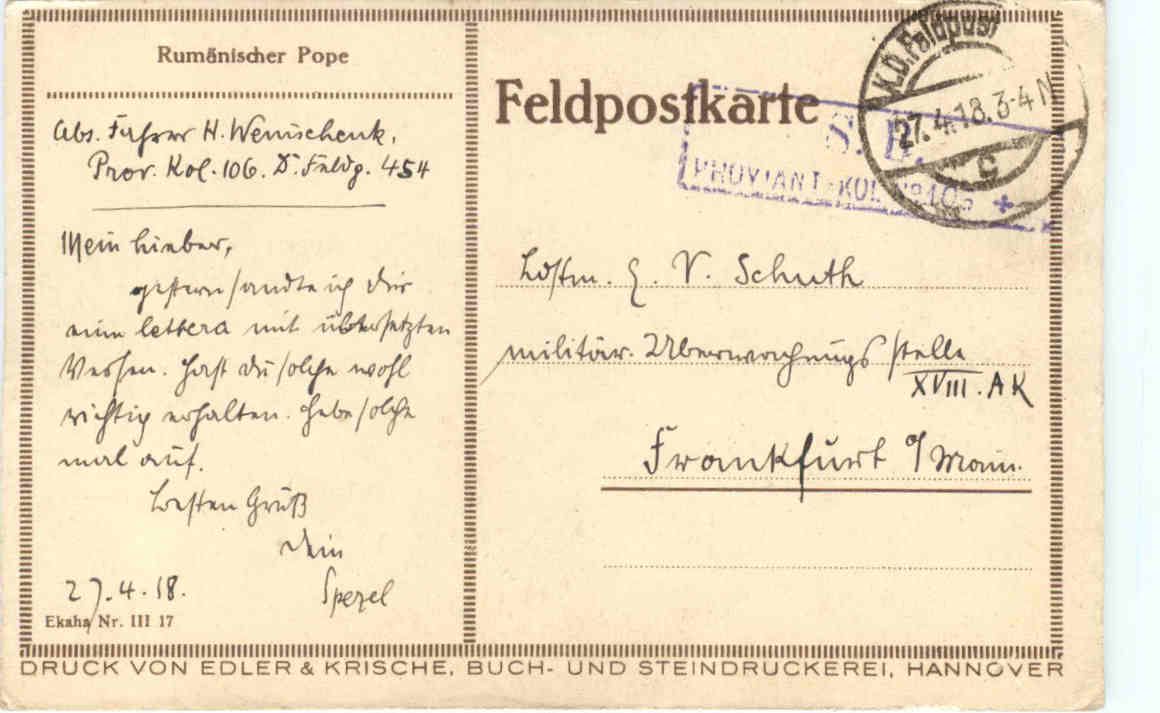 Rumänischer Pope
Abs. Fahrer H. Wenischenk,
Prov. Kol. 106. D. Feldp. 454
Mein Lieber,
gestern sandte ich Dir
eine lettera mit übersetzten
Versen. Hast Du solche wohl
richtig erhalten. Hebe solche
mal auf.
Besten Gruß
Dein
Spezel
27.4.18.
Ekaha Nr. III 17
Feldpostkarte
K.D. Feldpost
27.4.18. 3-4 N
c
S. B.
PROVIANT-KOL.
Ldstm. V. Schuth
militär. Überwachungsstelle
XVIII. AK
Frankfurt a/Main.
DRUCK VON EDLER & KRISCHE, BUCH- UND STEINDRUCKEREI, HANNOVER